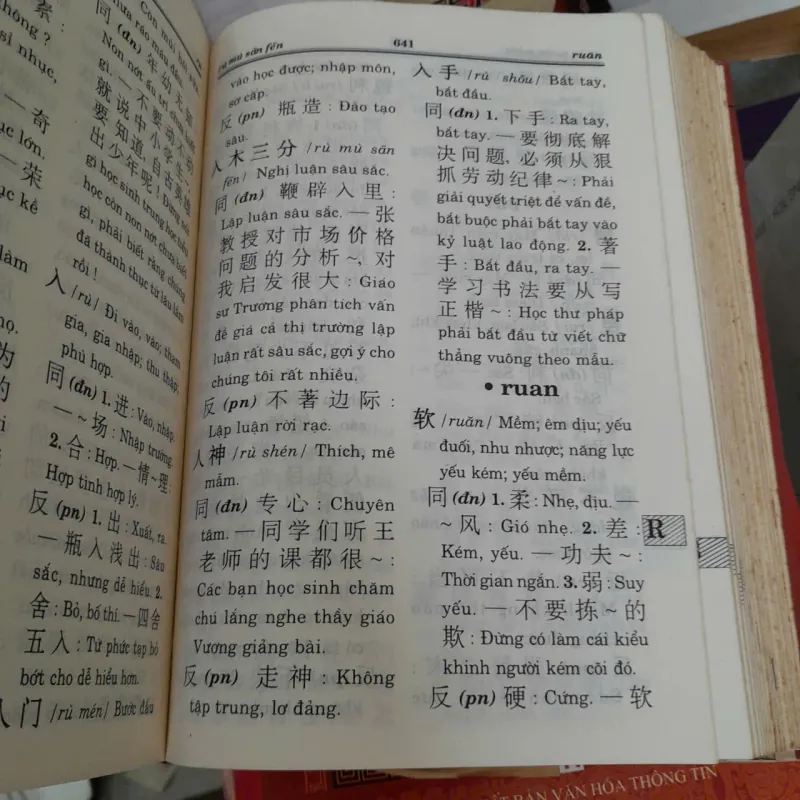 素 :
không ?
sỉ nhục,
奇
ục lớn.
荣
ục kể
làm
họ.
为
的
Còn
mưa rào máu đầm
同 (đn) 年幼无知
Non nớt ấu trĩ
一 不要动不动
就说中小学生~
要知道,自古英雄
出少年呢! Đừng nói
gì học sinh trung học tiểu
học còn non nớt chưa biết
gì, phải biết rằng chúng
đã thành thục từ lâu lắm
rồi !
入 /rù/ Đi vào, vào; tham
gia, gia nhập; thu thập,
phù hợp.
同 (đn) 1. 进: Vào, nhập.
一~场: Nhập trường.
2. 合: Hợp. 一情~理:
Hợp tình hợp lý.
反 (pn) 1. 出: Xuất, ra.
一 瓶入浅出: Sâu
sắc, nhưng dễ hiểu. 2.
舍: Bỏ, bố thí. 一四舍
五入: Từ phức tạp bỏ
bớt cho dễ hiểu hơn.
入门 /rù mén/ Bước đầu
rù mù sān fēn
641
ruǎn
vào học được; nhập môn,
sơ cấp.
反 (pn) 瓶造: Đào tạo
sâu.
入木三分 /rù mù sān
fēn/ Nghị luận sâu sắc.
同 (đn) 鞭辟入里:
Lập luận sâu sắc. 一 张
教授对市场价格
问题的分析~, 对
我启发很大: Giáo
sư Trương phân tích vấn
đề giá cả thị trường lập
luận rất sâu sắc, gợi ý cho
chúng tôi rất nhiều.
反 (pn) 不著边际:
Lập luận rời rạc.
入神 /rù shén/ Thích, mê
mẩm.
同 (đn) 专心: Chuyên
tâm. 一 同学们听王
老师的课都很~:
Các bạn học sinh chăm
chú lắng nghe thầy giáo
Vương giảng bài.
反 (pn) 走神: Không
tập trung, lơ đảng.
入手 /rù shǒu/ Bắt tay,
bắt đầu.
同 (đn) 1. 下手: Ra tay,
bắt tay. 一 要彻底解
决问题, 必须从狠
抓劳动纪律~: Phải
giải quyết triệt để vấn đề,
bắt buộc phải bắt tay vào
kỷ luật lao động. 2. 著
手: Bắt đầu, ra tay. 一
学习书法要从写
正楷~: Học thư pháp
phải bắt đầu từ viết chữ
thẳng vuông theo mẫu.
• ruan
软 /ruǎn/ Mềm; êm dịu; yếu
đuối, nhu nhược; năng lực
yếu kém; yếu mềm.
同 (đn) 1. 柔: Nhẹ, dịu. 一
~风: Gió nhẹ. 2. 差:
Kém, yếu. 一功夫~:
Thời gian ngắn. 3. 弱: Suy
yếu. 一不要拣~的
欺: Đừng có làm cái kiểu
khinh người kém cõi đó.
反 (pn) 硬: Cứng. 一软
R
BẢN VĂN HÓA THÔNG TIN